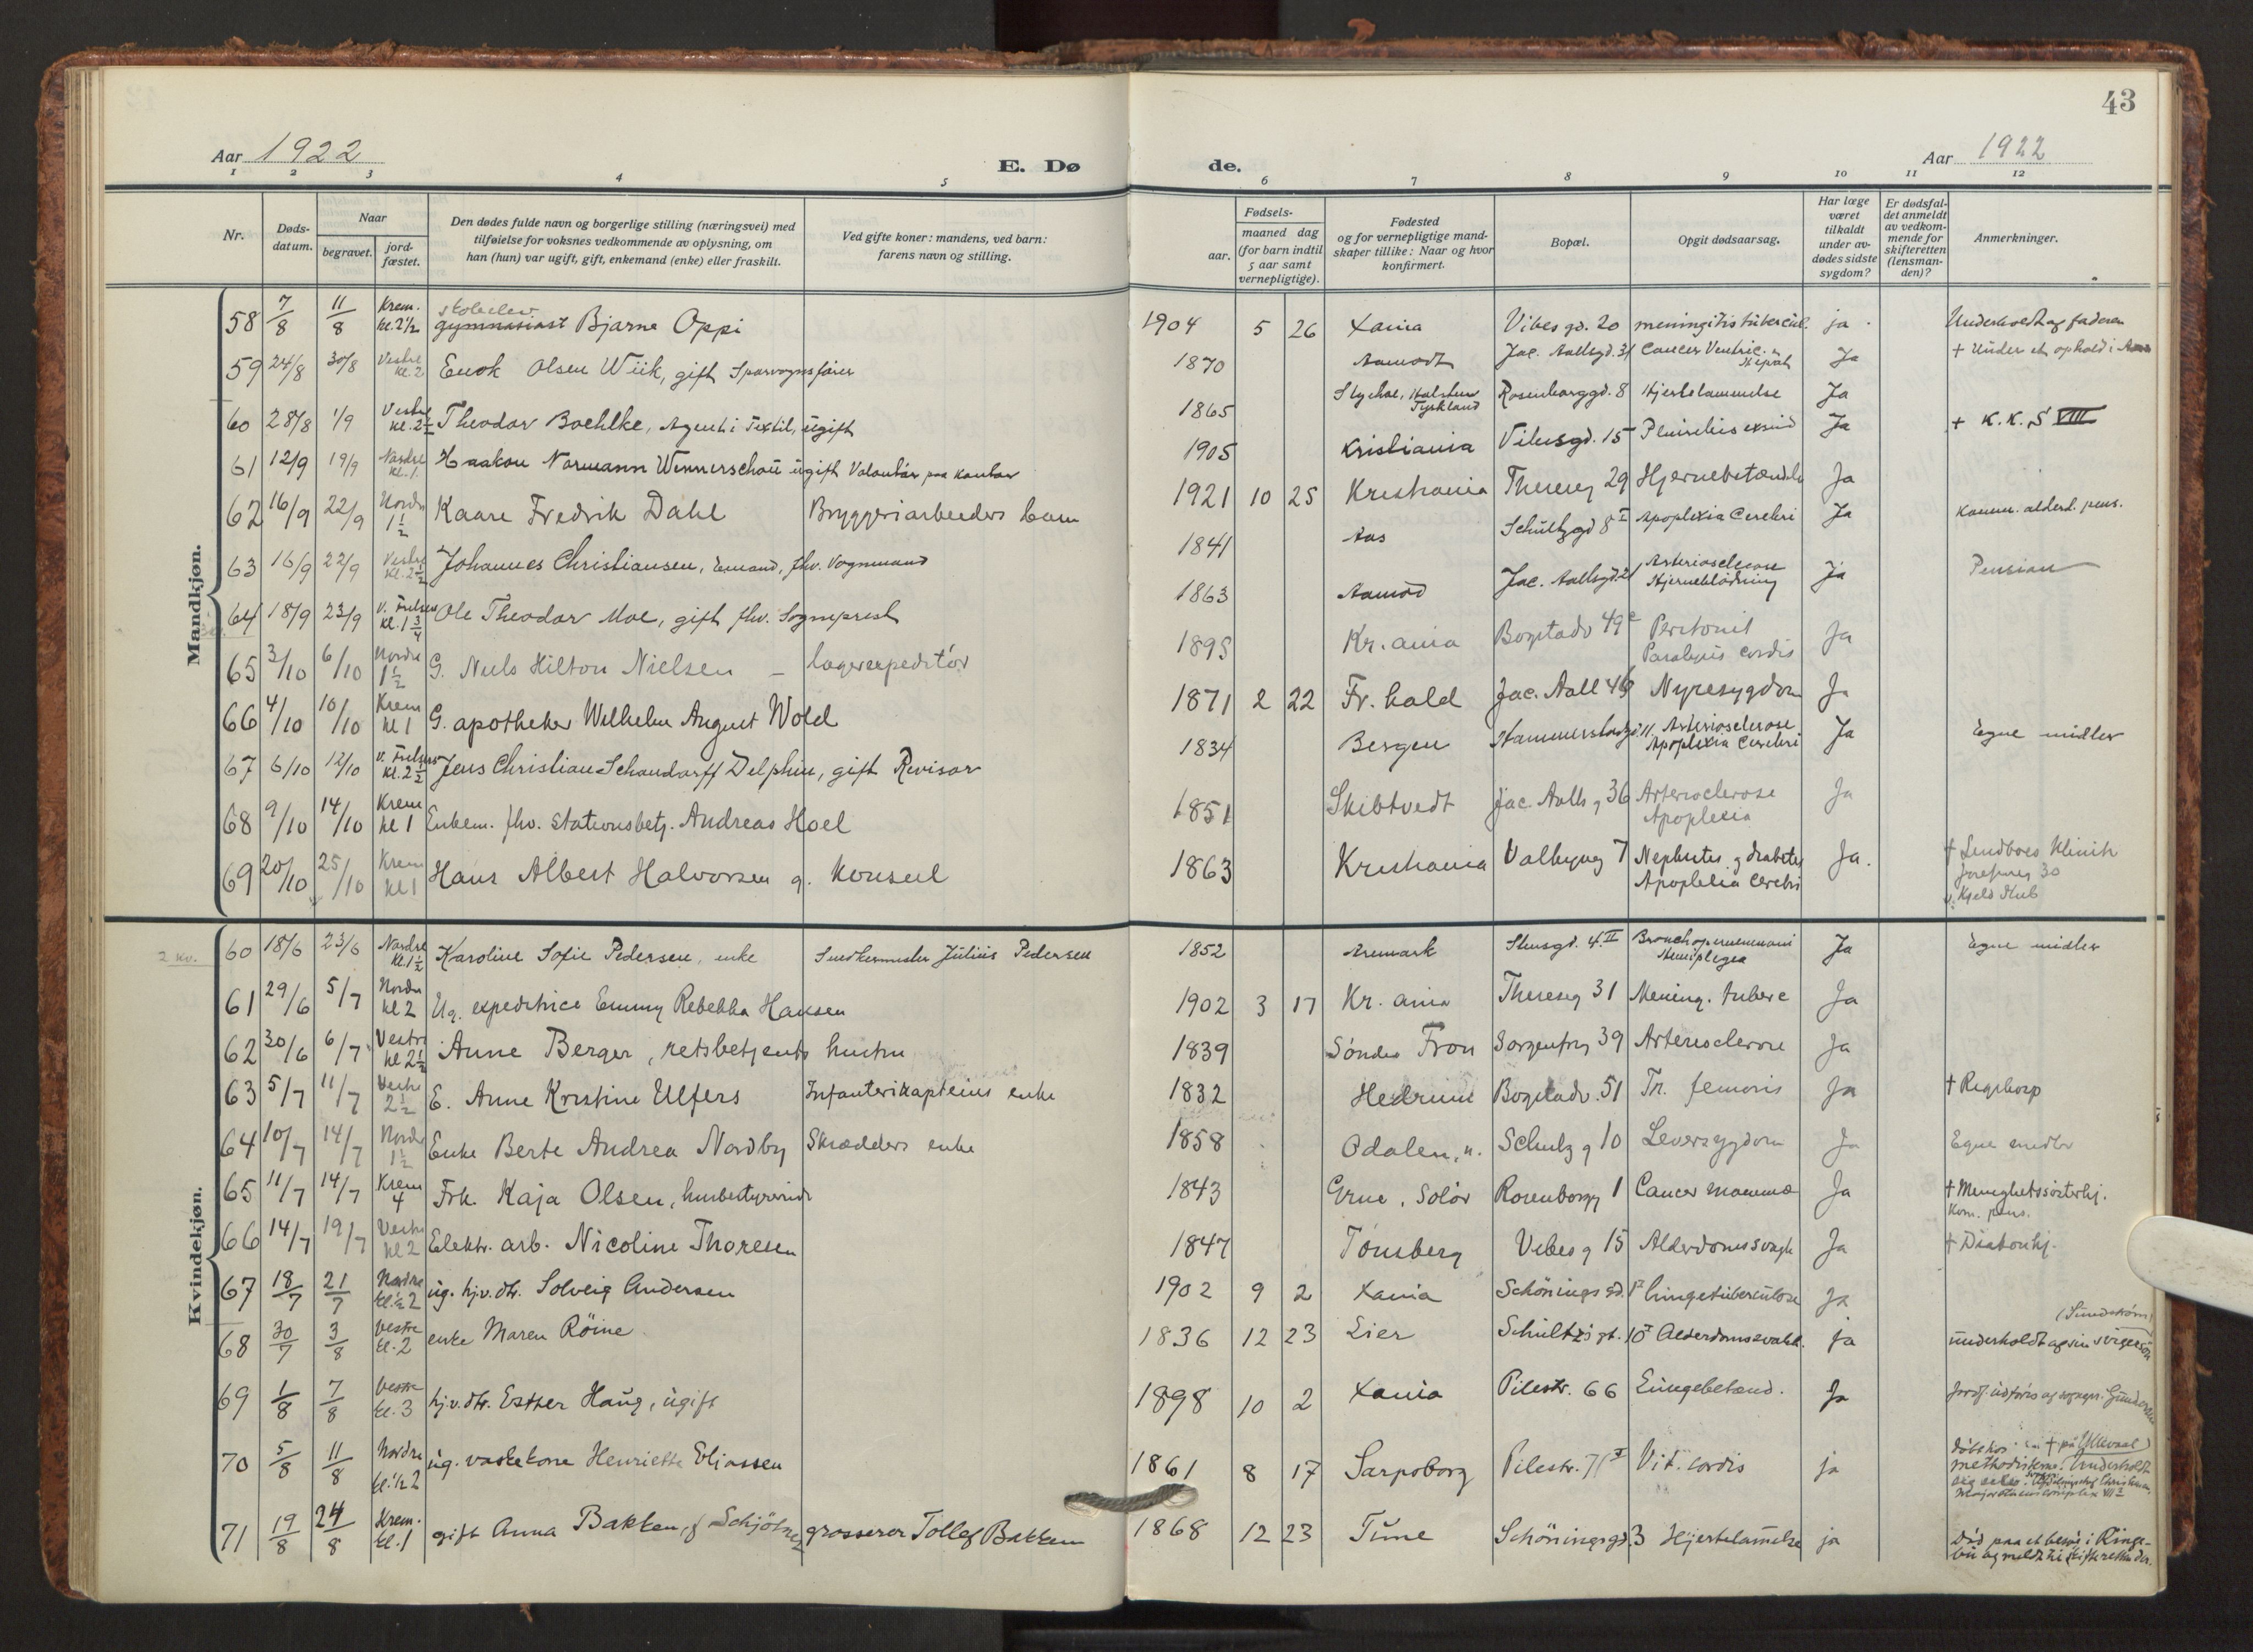 43
Aar 1922
E. Dø de.
Aar 1922
1 2 3 4 5 6 7 8 9 10 11 12
Nr.
Døds-
datum.
Naar
begravet.
jord-
fæstet.
Den dødes fulde navn og borgerlige stilling (næringsvei) med
tilføielse for voksnes vedkommende av oplysning, om
han (hun) var ugift, gift, enkemand (enke) eller fraskilt.
Ved gifte koner: mandens, ved barn:
farens navn og stilling.
Fødsels-
aar.
maaned dag
(for barn indtil
5 aar samt
vernepligtige).
Fødested
og for vernepligtige mand-
skaper tillike: Naar og hvor
konfirmert.
Bopæl.
Opgit dødsaarsag.
Har læge
været
tilkaldt
under av-
dødes sidste
sygdom?
Er dødsfal-
det anmeldt
av vedkom-
mende for
skifteretten
(lensman-
den)?
Anmerkninger.
Mandkjøn.
58 7/8 11/8 Krem. kl. 2 1/2 skoleelev gymnasiast Bjarne Oppi 1904 5 26 Xania Vibes gd. 20 meningitis tubercul. ja Underholdt af faderen
59 24/8 30/8 Vestre kl. 2 Enok Olsen Wiik, gift Sporvognsfører 1870 Aamodt Jac. Aallsgd. 31 Cancer Ventric. Hepat. Ja + Under et ophold i
60 28/8 1/9 Vestre kl. 2 1/2 Theodor Boehlke, Agent i Textil, ugift 1865 Holsten Tyskland Rosenborggd. 8 Hjertelammelse Ja
61 12/9 19/9 Nordre kl. 1 Haakon Normann Wennerschou ugift Volontør paa kontor 1905 Kristiania Vibesgd. 15 Ja + K. K. S VIII
62 16/9 22/9 Nordre 1 1/2 Kaare Fredrik Dahl Bryggeriarbeiders barn 1921 10 25 Kristiania Theresg 29 Hjernebetændelse Ja
63 16/9 22/9 Vestre kl. 2 1/2 Johannes Christiansen, Emand, fhv. Vognmand 1841 Aas Schultzgd 8 I Apoplexia Cerebri Ja Komm. alderd. pens.
64 18/9 23/9 V. Frelsers kl. 1 3/4 Ole Theodor Moe, gift fhv. Sogneprest 1863 Aamod Jac. Aallsgd. 21 Arteriosclerose Hjerneblødning Ja Pension
65 3/10 6/10 Nordre 1 1/2 G. Niels Hilton Nielsen – lagerexpeditør 1895 Kr.ania Bogstadv 49c Peritonit Paralysis cordis Ja
66 4/10 10/10 Krem kl 1 G. apotheker Wilhelm August Wold 1871 2 22 Fr. hald Jac. Aall 48 Nyresygdom Ja
67 6/10 12/10 V. Frelsers kl. 2 1/2 Jens Christian Schandorff Delphin, gift Revisor 1834 Bergen Hammerstadgd. 11. Arteriosclerose Apoplexia Cerebri Ja Egne midler
68 9/10 14/10 Krem kl 1 Enkem. fhv. stationsbetj. Andreas Hoel 1851 Skibtvedt Jac. Aalls g 36 Arteriosclerose Apoplexia Ja
69 20/10 25/10 Krem kl 1 Hans Albert Halvorsen g. konsul 1863 Kristiania Valbyvg 7 Nephritis g diabetes Apoplexia cerebri Ja. + Lundboes Klinik Josefinesg 30 v. Kjeld Stub
Kvindekjøn.
2 kv. 60 18/6 23/6 Nordre kl. 1 1/2 Karoline Sofie Pedersen, enke Snedkermester Julius Pedersen 1852 Aremark Stensgd. 4 II Bronchopneumoni Hemiplegea Ja Egne midler
61 29/6 5/7 Nordre kl 2 Ug. expeditrice Emmy Rebekka Hansen 1902 3 17 Kr. ania Theresg 31 Mening. tuberc Ja
62 30/6 6/7 Vestre kl 2 1/2 Anne Berger, retsbetjents hustru 1839 Søndre Fron Sorgenfrig 39 Arteriosclerose Ja
63 5/7 11/7 Vestre 2 1/2 E. Anne Kristine Ulfers Infanterikapteins enke 1832 Hedrum Bogstadv. 51 Fr. femoris Ja + Rigshosp
64 10/7 14/7 Nordre 1 1/2 Enke Berte Andrea Nordby Skrædders enke 1858 Odalen, n. Schultz g 10 Leversygdom Ja Egne midler
65 11/7 14/7 Krem 4 Frk. Kaja Olsen, husbestyrerinde 1843 Grue, Solør Rosenborgg 1 Cancer mammæ Ja + Menighetssøsterhj. Kom. pens.
66 14/7 19/7 Vestre kl 2 Elektr. arb. Nicoline Thoresen 1847 Tønsberg Vibes g 15 Alderdomssvagh Ja + Diakonhj.
67 18/7 21/7 Nordre kl. 1/2 2 ug. hj.v. dtr. Solveig Andersen 1902 9 2 Xania Schönings gd. lungetuberculose Ja
68 30/7 3/8 Vestre kl. 2 enke Maren Röine 1836 12 23 Lier Schultz's gt. 10 I Alderdomssvakh. ja (Sundström) underholdt af sin svigersön
69 1/8 7/8 Vestre kl. 3 hj.v. dtr. Esther Haug, ugift 1898 10 2 Xania Pilestr. 66 Lungebetænd. Ja Jordf. udføres af sognepr. Gundersen
70 5/8 11/8 Nordre kl. 1/2 2 ug. vaskekone Henriette Eliassen 1861 8 17 Sarpsborg Pilestr. 71 I Vit. cordis ja + på Ullevaal methodisterne. Underholdt sig selv.
71 19/8 24/8 Krem. kl. 1 gift Anna Bakken, f Schjötne grosserer Tollef Bakken 1868 12 23 Tune Schöningsgd. 3 Hjertelammelse ja Död paa et besøg i Ringebu og meldt til skifteretten der.